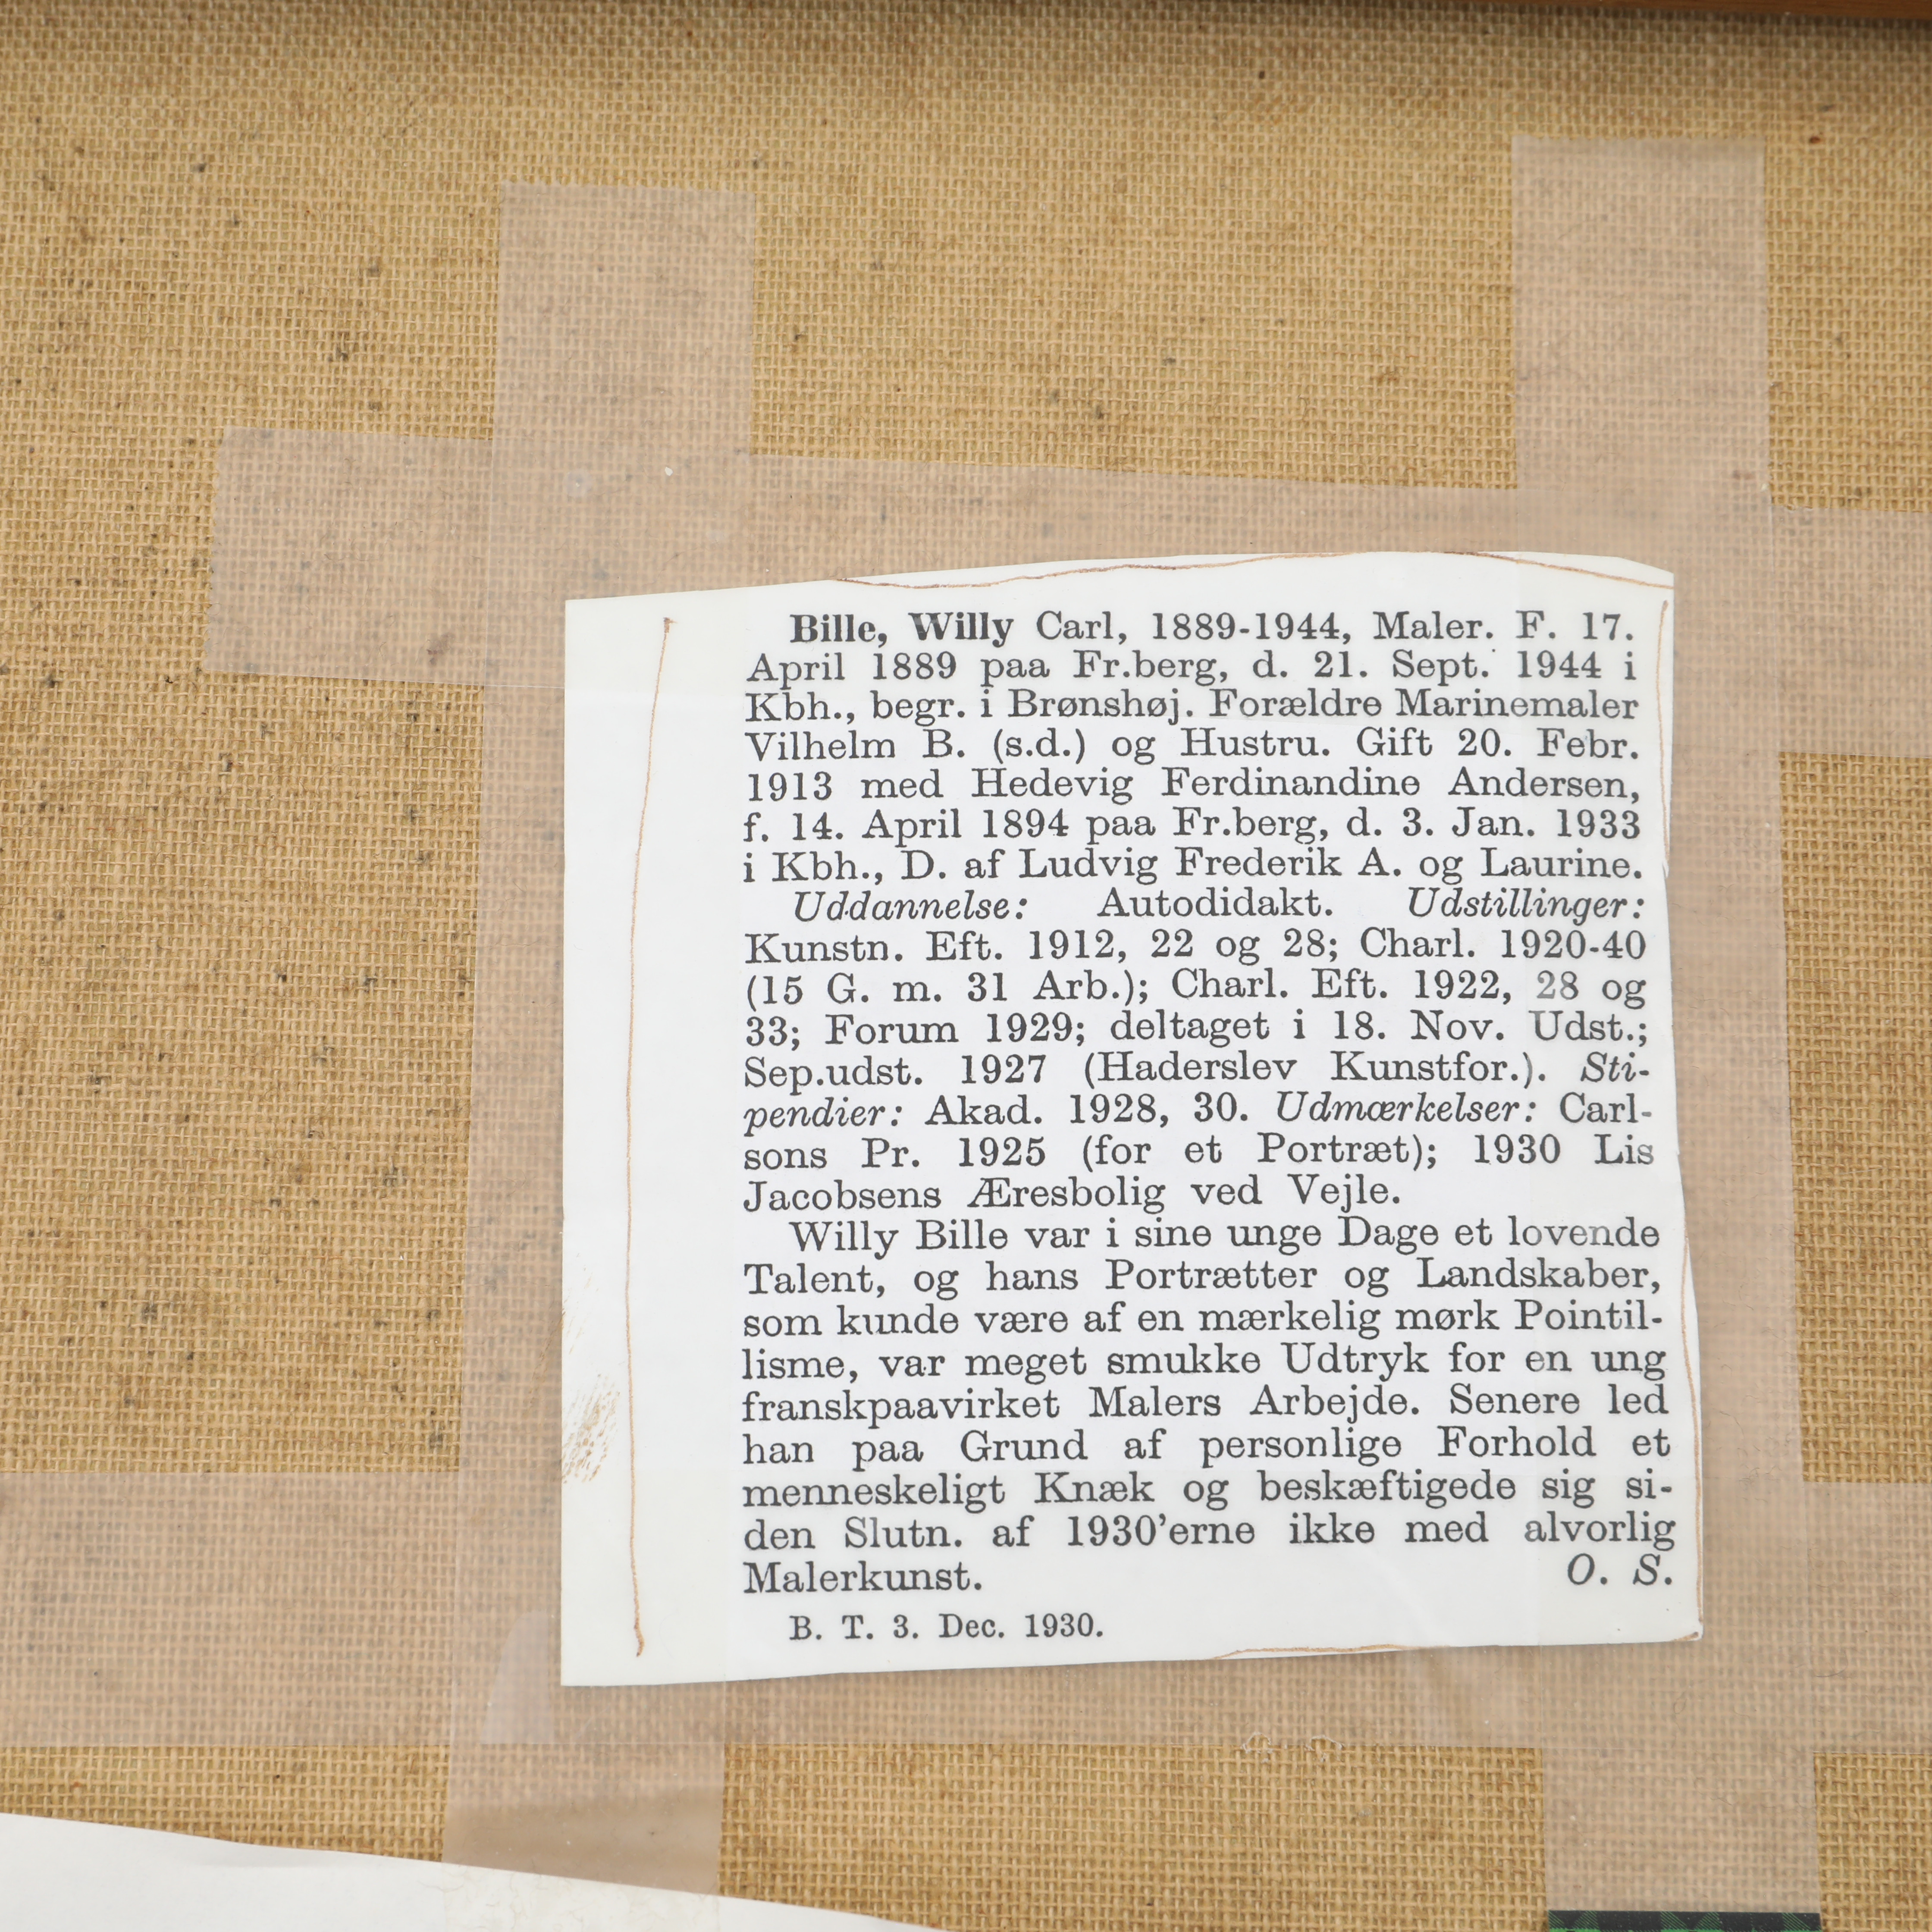 Bille, Willy Carl, 1889-1944, Maler. F. 17.
April 1889 paa Fr.berg, d. 21. Sept. 1944 i
Kbh., begr. i Brønshøj. Forældre Marinemaler
Vilhelm B. (s.d.) og Hustru. Gift 20. Febr.
1913 med Hedevig Ferdinandine Andersen,
f. 14. April 1894 paa Fr.berg, d. 3. Jan. 1933
i Kbh., D. af Ludvig Frederik A. og Laurine.
Uddannelse: Autodidakt. Udstillinger:
Kunstn. Eft. 1912, 22 og 28; Charl. 1920-40
(15 G. m. 31 Arb.); Charl. Eft. 1922, 28 og
33; Forum 1929; deltaget i 18. Nov. Udst.;
Sep.udst. 1927 (Haderslev Kunstfor.). Sti-
pendier: Akad. 1928, 30. Udmærkelser: Carl-
sons Pr. 1925 (for et Portræt); 1930 Lis
Jacobsens Æresbolig ved Vejle.
Willy Bille var i sine unge Dage et lovende
Talent, og hans Portrætter og Landskaber,
som kunde være af en mærkelig mørk Pointil-
lisme, var meget smukke Udtryk for en ung
franskpaavirket Malers Arbejde. Senere led
han paa Grund af personlige Forhold et
menneskeligt Knæk og beskæftigede sig si-
den Slutn. af 1930'erne ikke med alvorlig
Malerkunst. O. S.
B. T. 3. Dec. 1930.